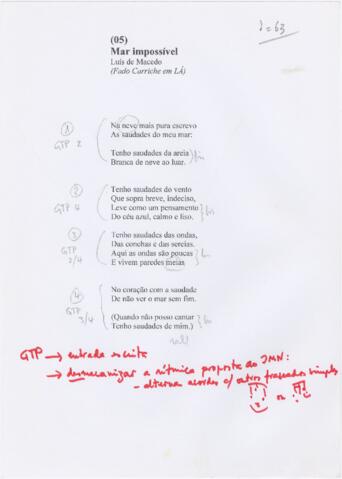 ♩=63
(05)
Mar impossível
Luís de Macedo
(Fado Carriche em LÁ)
1
GTP 2
Na neve mais pura escrevo
As saudades do meu mar:
Tenho saudades da areia
Branca de neve ao luar.
bis
2
GTP 4
Tenho saudades do vento
Que sopra breve, indeciso,
Leve como um pensamento
Do céu azul, calmo e liso.
bis
3
GTP 2/4
Tenho saudades das ondas,
Das conchas e das sereias.
Aqui as ondas são poucas
E vivem paredes meias
bis
4
GTP 3/4
No coração com a saudade
De não ver o mar sem fim.
(Quando não posso cantar
Tenho saudades de mim.)
bis
rall
GTP → entrada
→ desmecanizar a rítmica proposta do JMN:
- alterna acordes c/ outros fraseados simples
ou